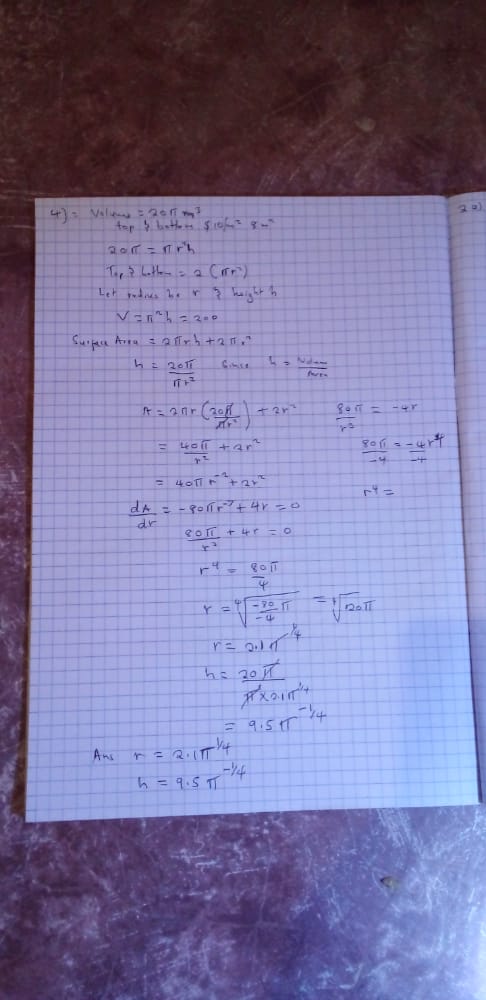 4) = Volume = 20π m³
top & bottom $10/m² 8m²
20π = πr²h
Top & bottom = 2 (πr²)
Let radius be r & height h
V = π²h = 200
Surface Area = 2πrh + 2πr²
h = 20π/πr² Since h = Volume/Area
A = 2πr (20π/πr²) + 2r²
= 40π/r² + 2r²
= 40πr⁻² + 2r²
dA/dr = -80πr⁻³ + 4r = 0
80π/r³ + 4r = 0
r⁴ = 80π/4
r = ⁴√(-80/-4 π) = ⁴√20π
r = 2.1π^1/4
h = 20π/π × 2.1π^1/4
= 9.5π^-1/4
Ans r = 2.1π^1/4
h = 9.5π^-1/4
80π/r³ = -4r
80π/-4 = -4r⁴/-4
r⁴ =
2a)